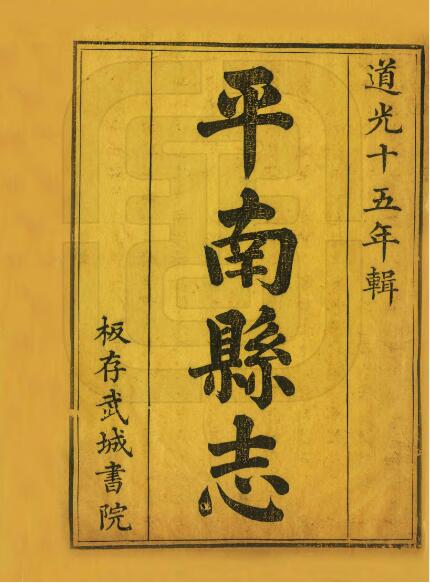 道光十五年輯
平南縣志
板存武城書院